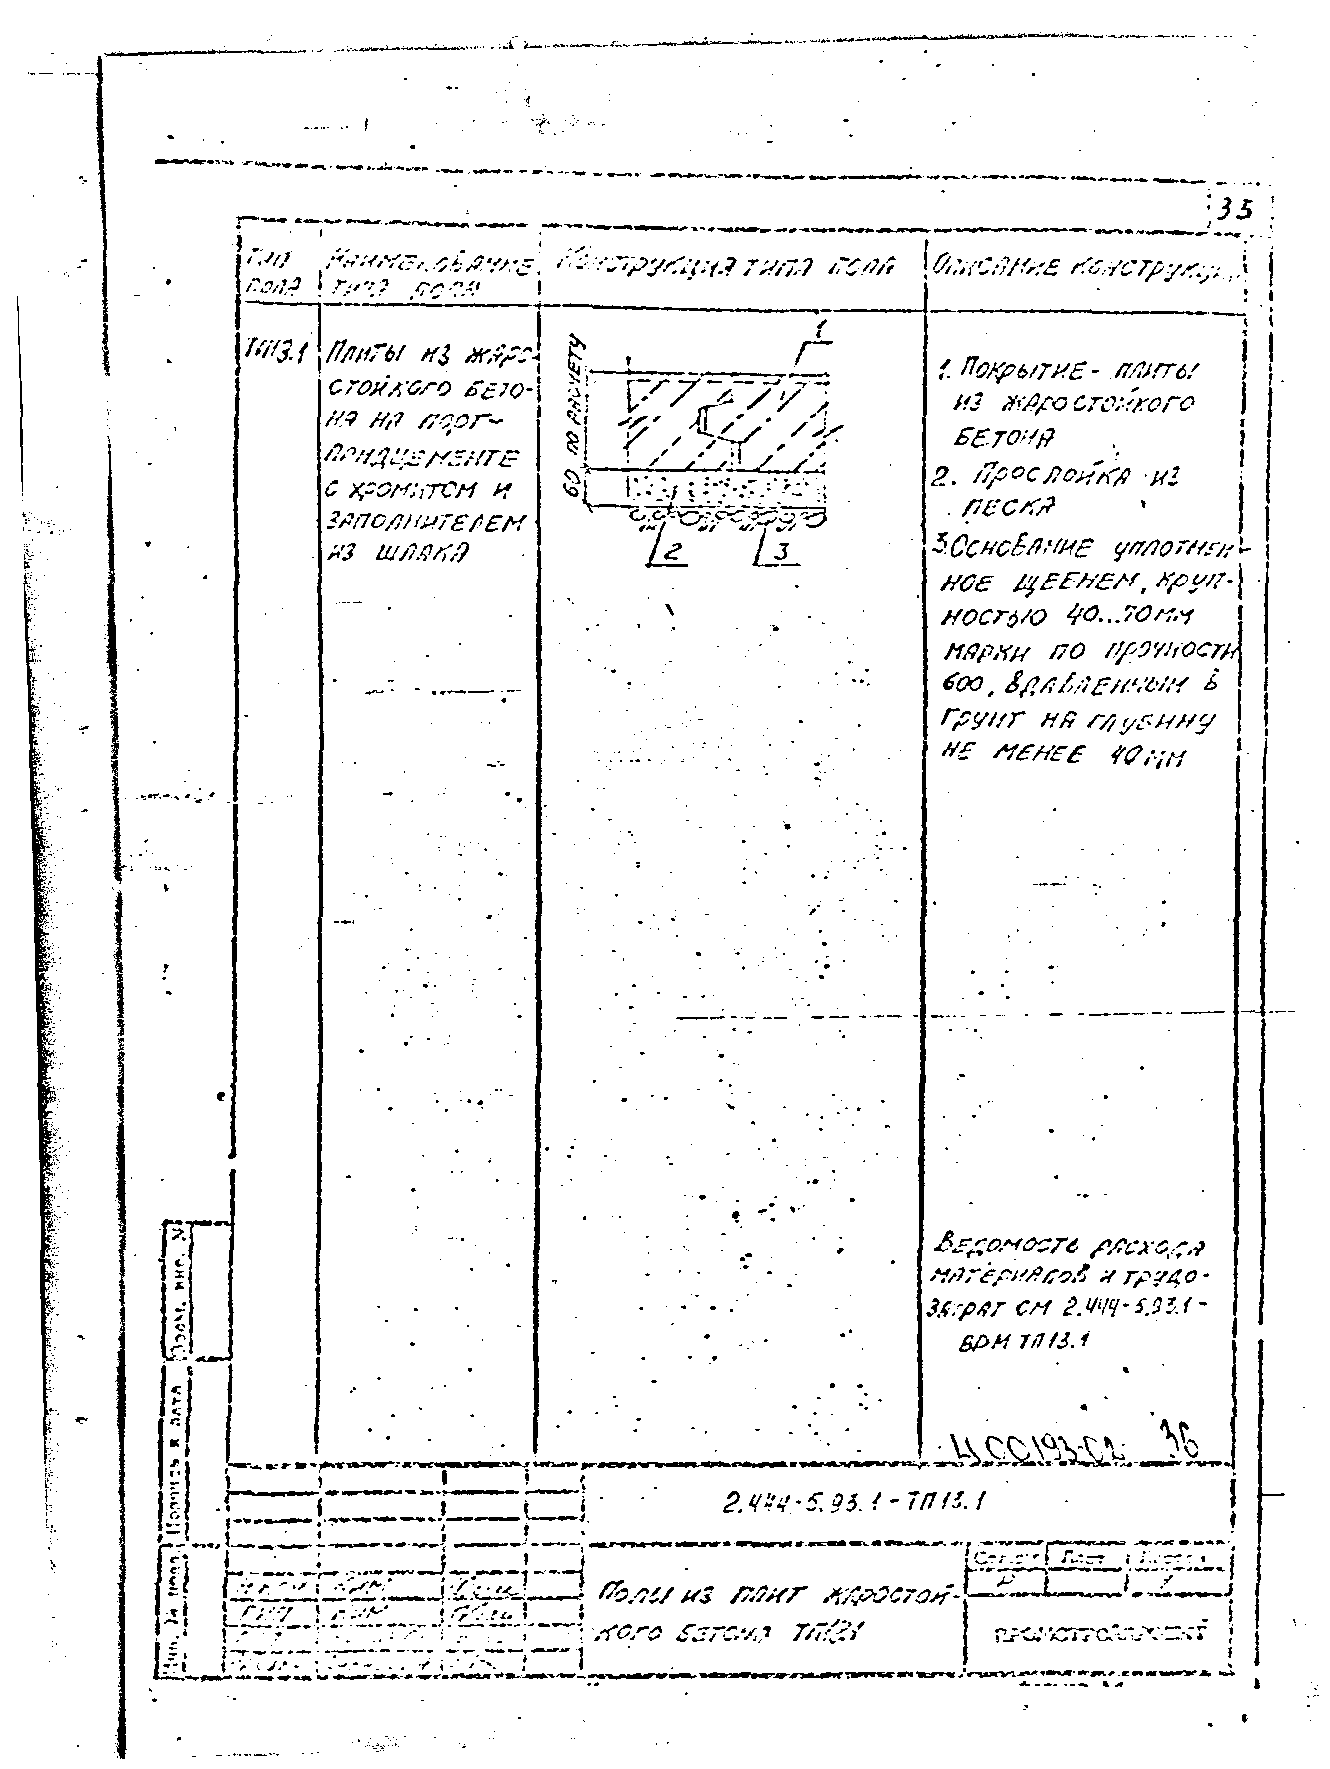 35
Тип
пола
Наименование
типа пола
Конструкция типа пола
Описание конструкции
ТП13.1
Плиты из жаро-
стойкого бето-
на на порт-
ландцементе
с хромитом и
заполнителем
из шлака
60 по расчету
1
2
3
1. Покрытие - плиты
из жаростойкого
бетона
2. Прослойка из
песка
3. Основание уплотнен-
ное щебнем, круп-
ностью 40...70мм
марки по прочности
600, вдавленным в
грунт на глубину
не менее 40мм
Ведомость расхода
материалов и трудо-
затрат см 2.444-5.93.1-
ВРМ ТП13.1
36
2.444-5.93.1-ТП13.1
Взам. инв. №
Подпись и дата
Инв. № подл.
ГИП
Полы из плит жаростой-
кого бетона
Стадия Лист Листов
Р 1